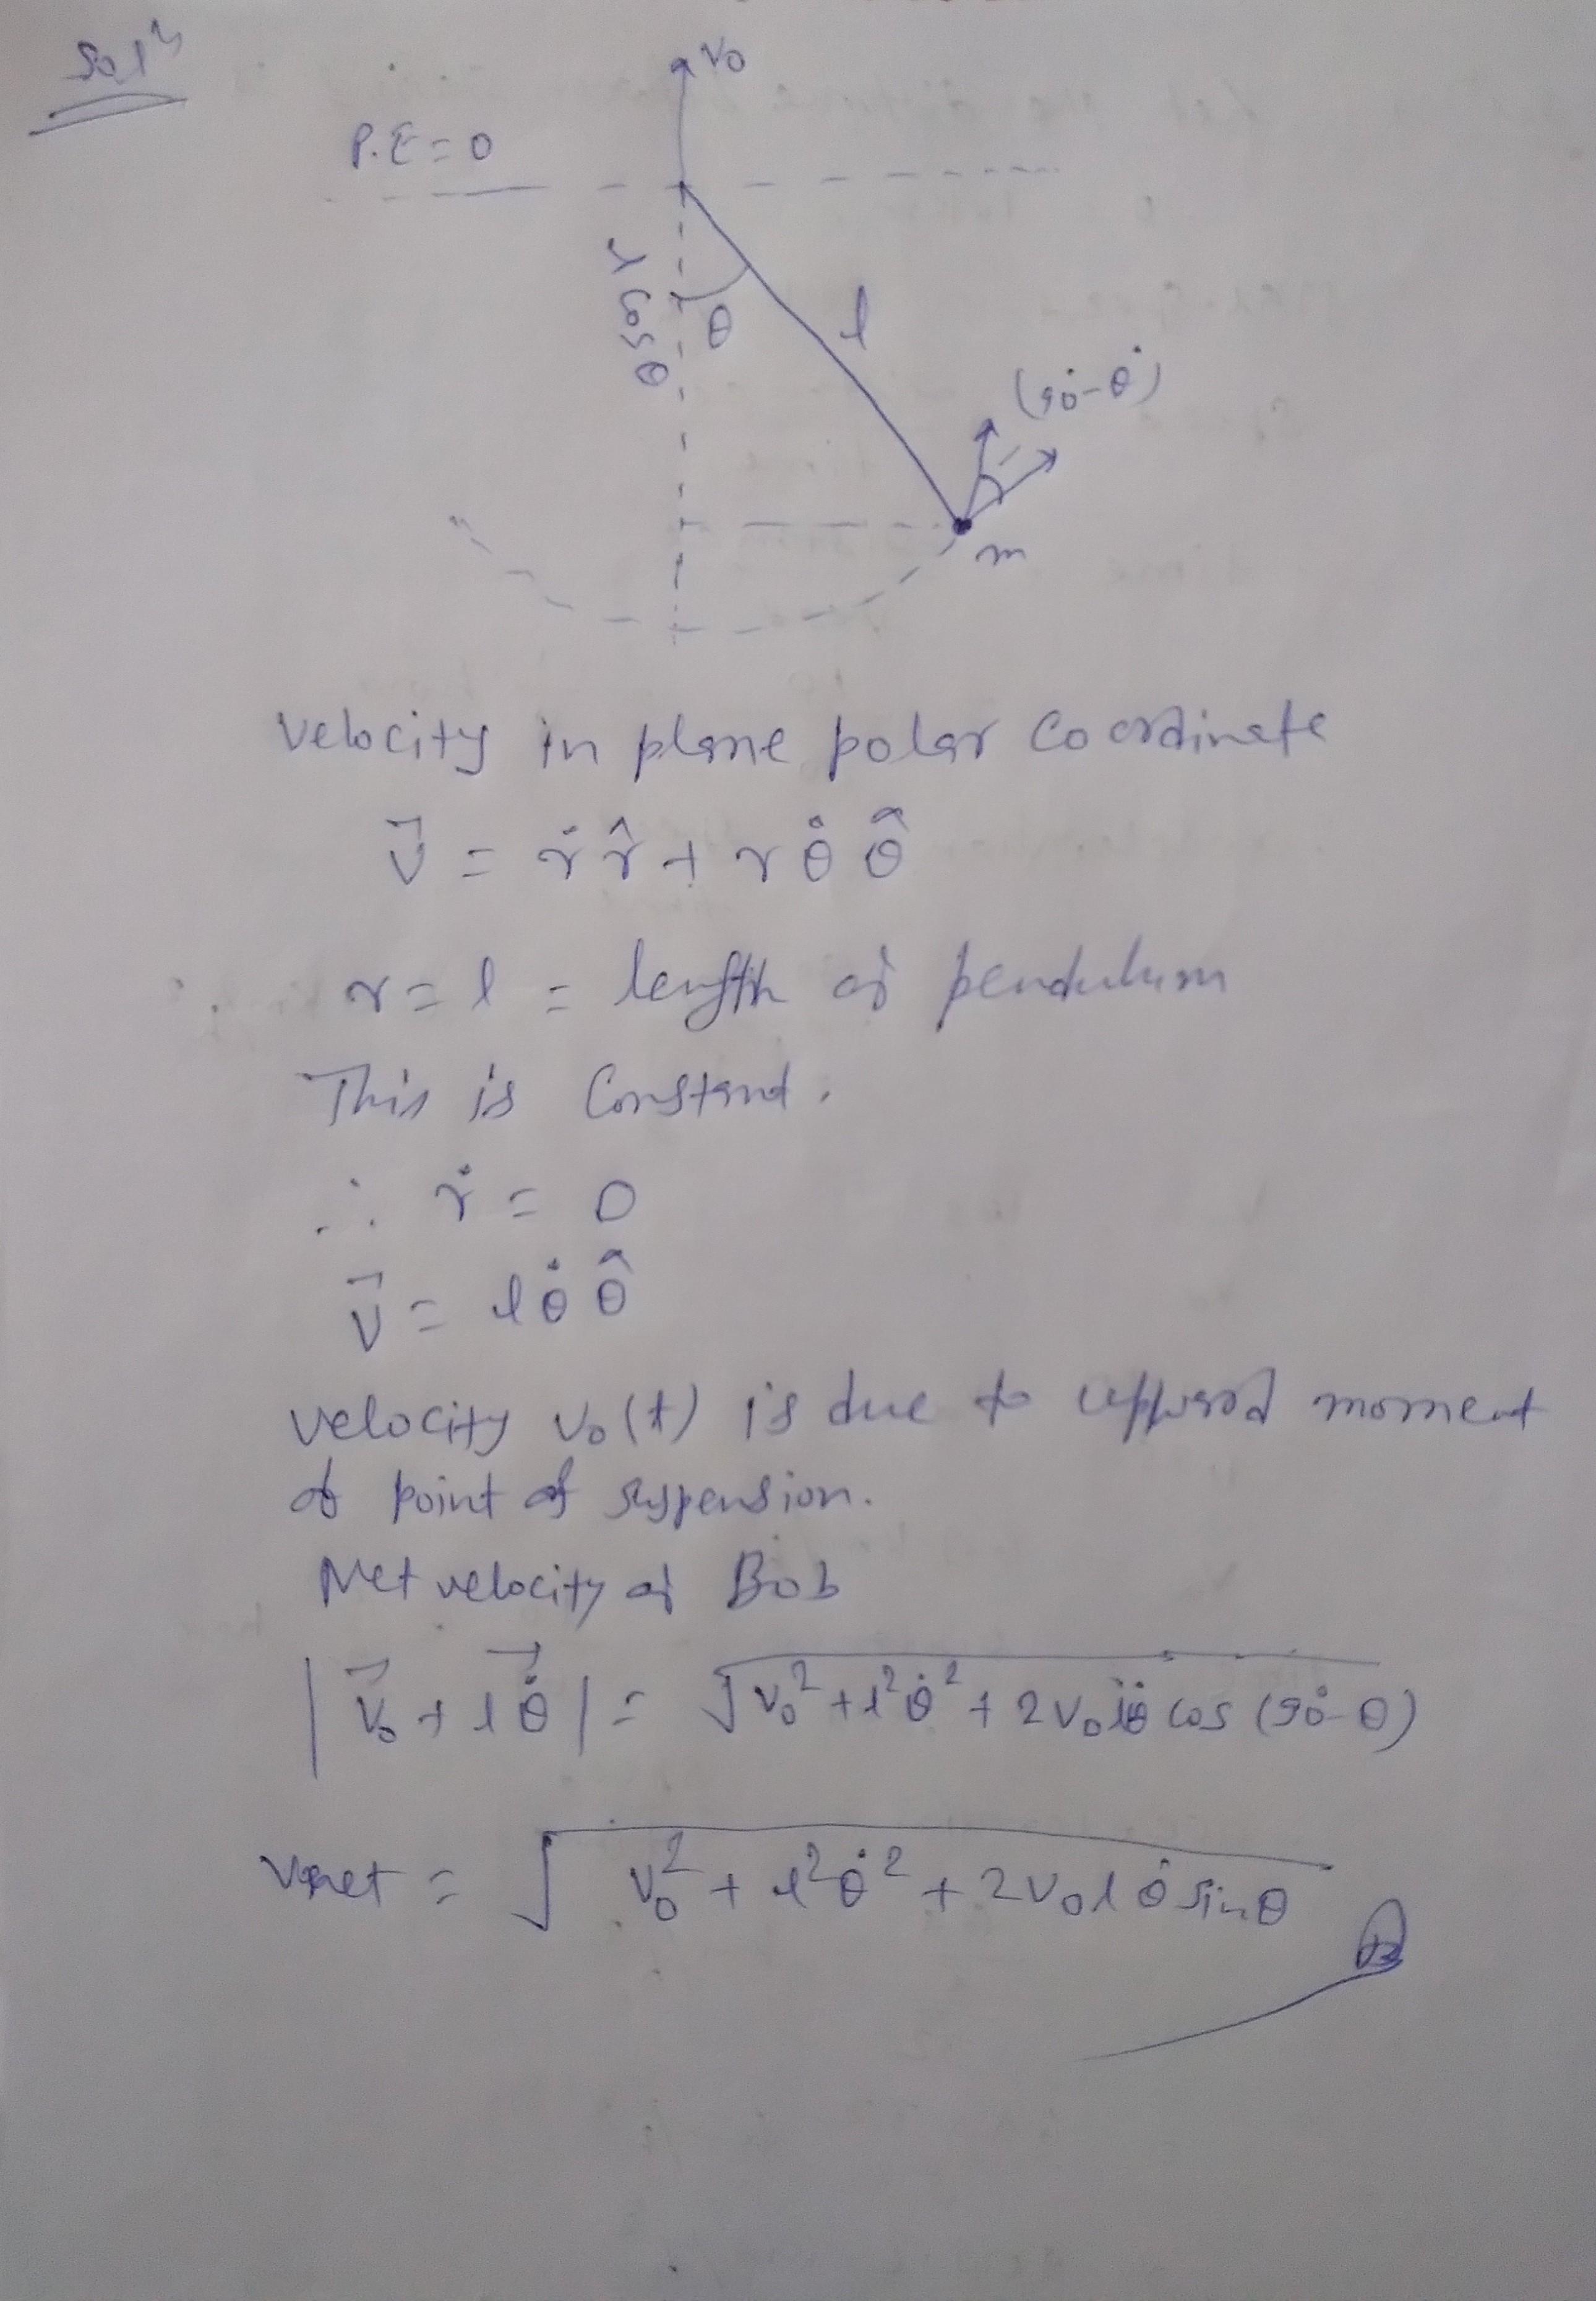 Solⁿ
v₀
P.E = 0
r cosθ
θ
l
(90° - θ)
m
Velocity in plane polar coordinate
v⃗ = ṙ r̂ + r θ̇ θ̂
∵ r = l = length of pendulum
This is Constant.
∴ ṙ = 0
v⃗ = l θ̇ θ̂
velocity v₀(t) is due to upward moment
of point of suspension.
Net velocity of Bob
|v⃗₀ + l θ̇⃗| = √(v₀² + l² θ̇² + 2 v₀ l θ̇ cos (90° - θ))
v net = √(v₀² + l² θ̇² + 2 v₀ l θ̇ sinθ)